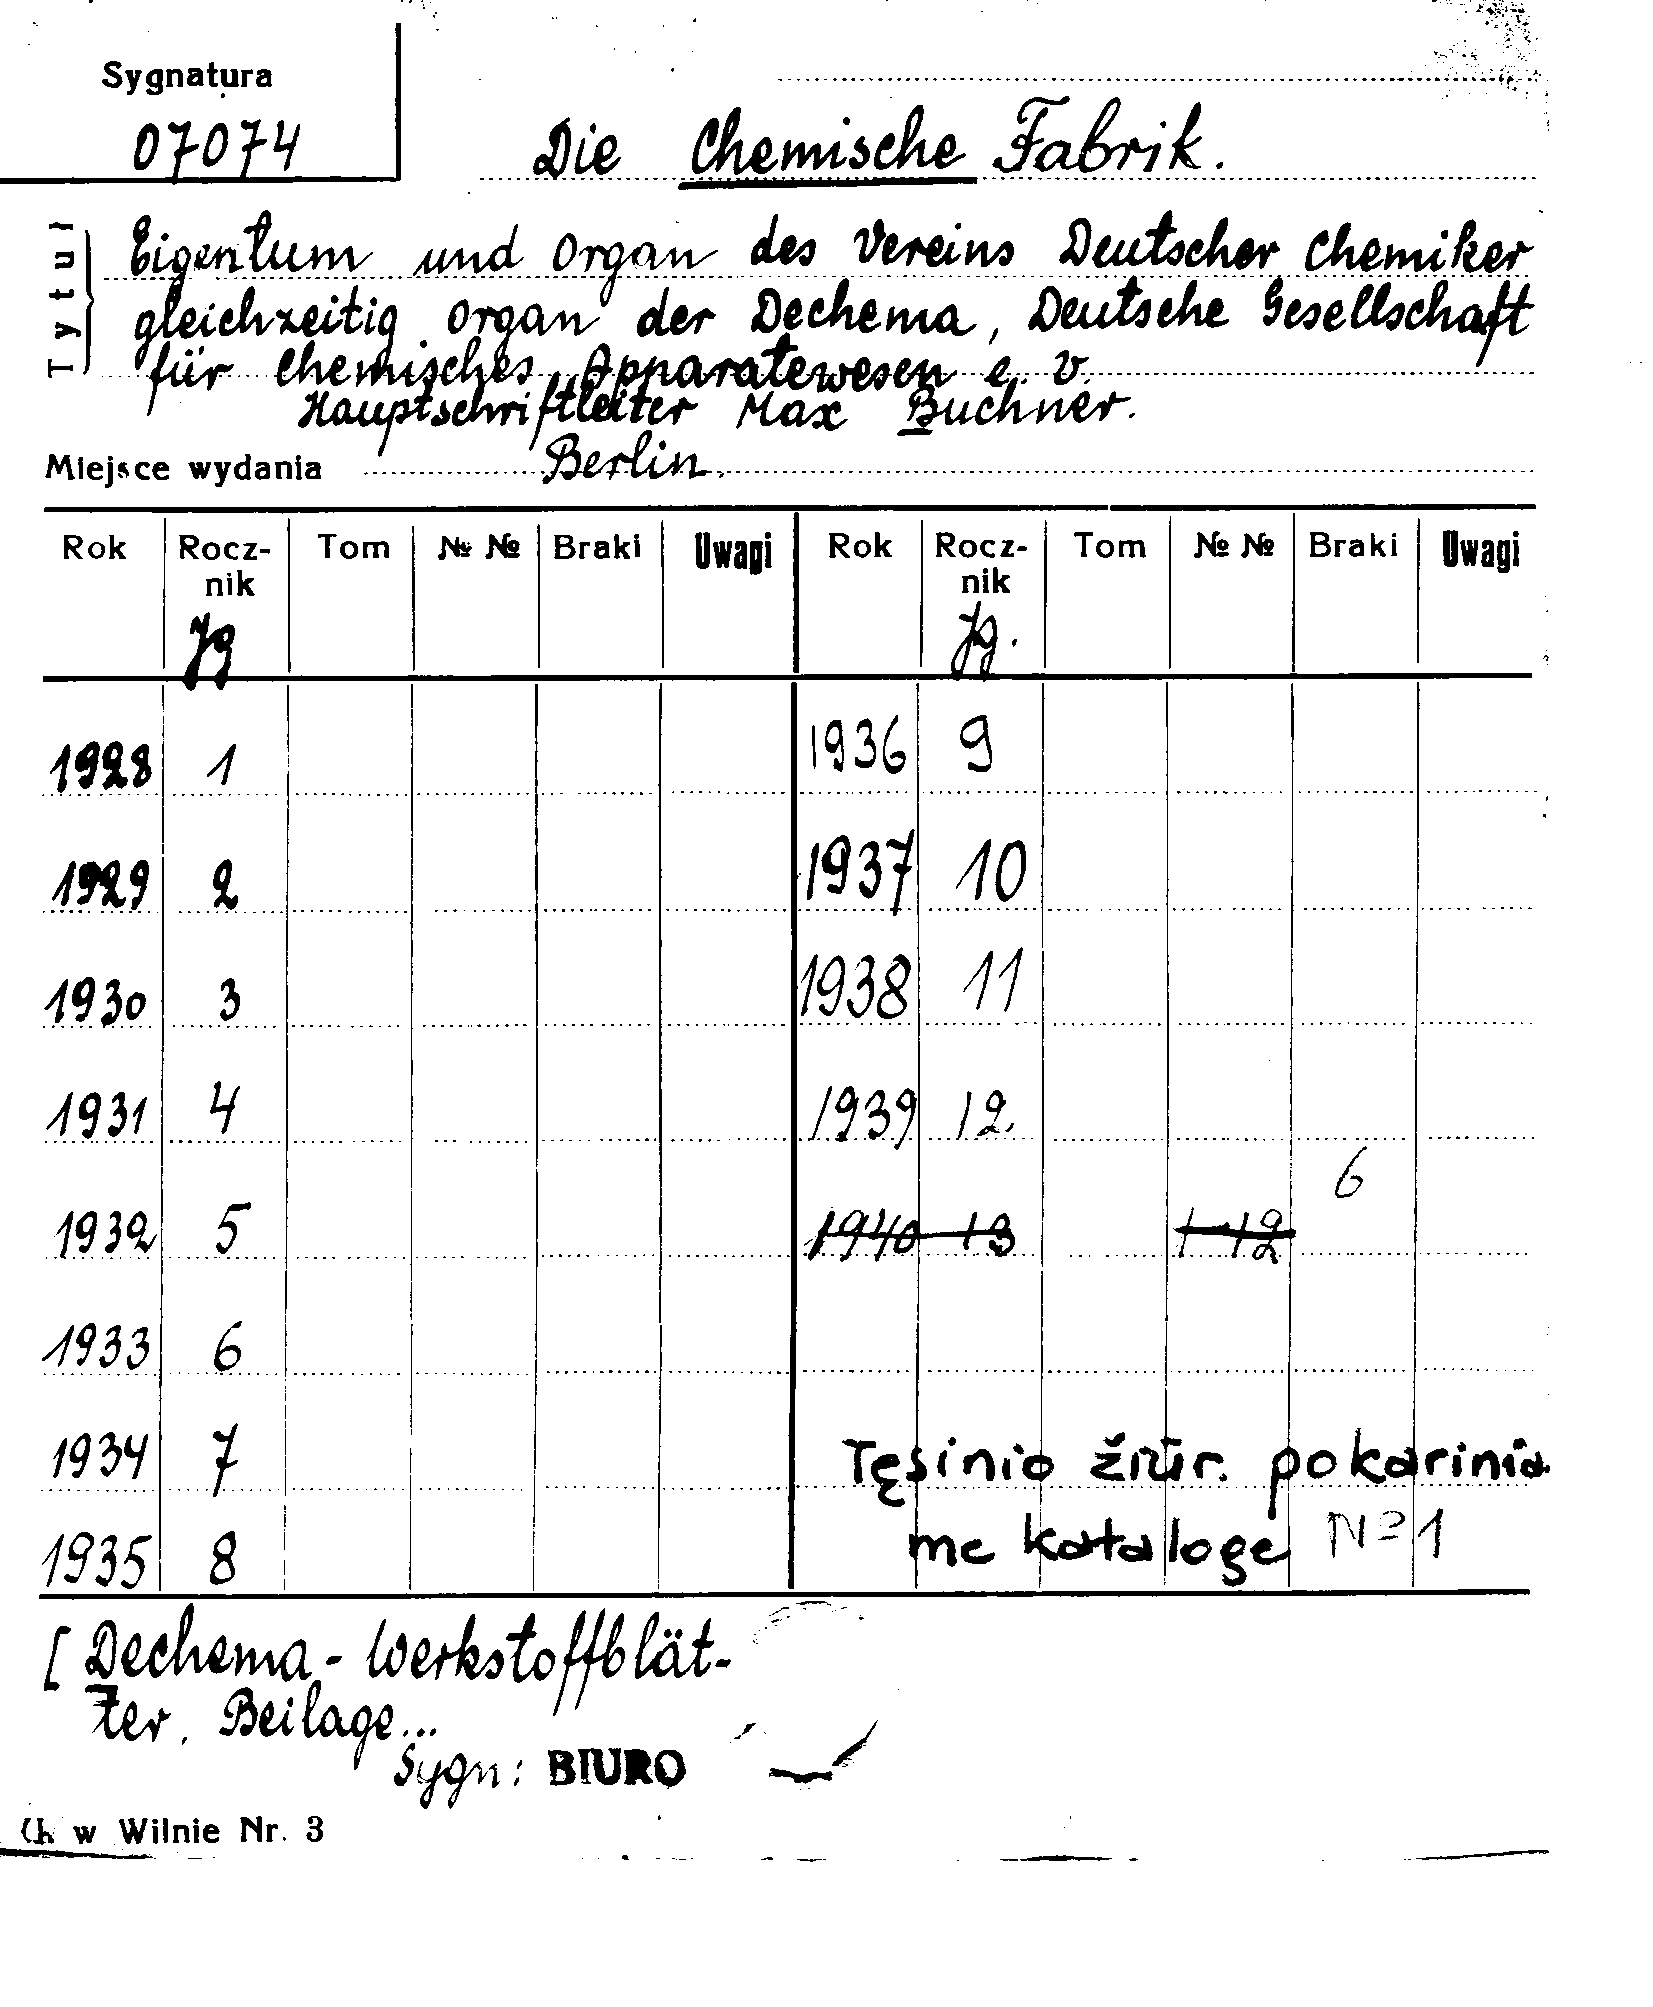 Sygnatura
07074
Die Chemische Fabrik.
Tytuł
Eigentum und Organ des Vereins Deutscher Chemiker
gleichzeitig Organ der Dechema, Deutsche Gesellschaft
für Chemisches Apparatewesen e. V.
Hauptschriftleiter Max Buchner.
Miejsce wydania Berlin.
Rok Rocz- Tom № № Braki Uwagi Rok Rocz- Tom № № Braki Uwagi
nik nik
Jg Jg.
1928 1 1936 9
1929 2 1937 10
1930 3 1938 11
1931 4 1939 12
6
1932 5 1940 13 1-12
1933 6
1934 7 Tęsinio žiūr. pokarinia-
1935 8 me kataloge № 1
[ Dechema-Werkstoffblät-
ter. Beilage...
Sygn: BIURO
w Wilnie Nr. 3